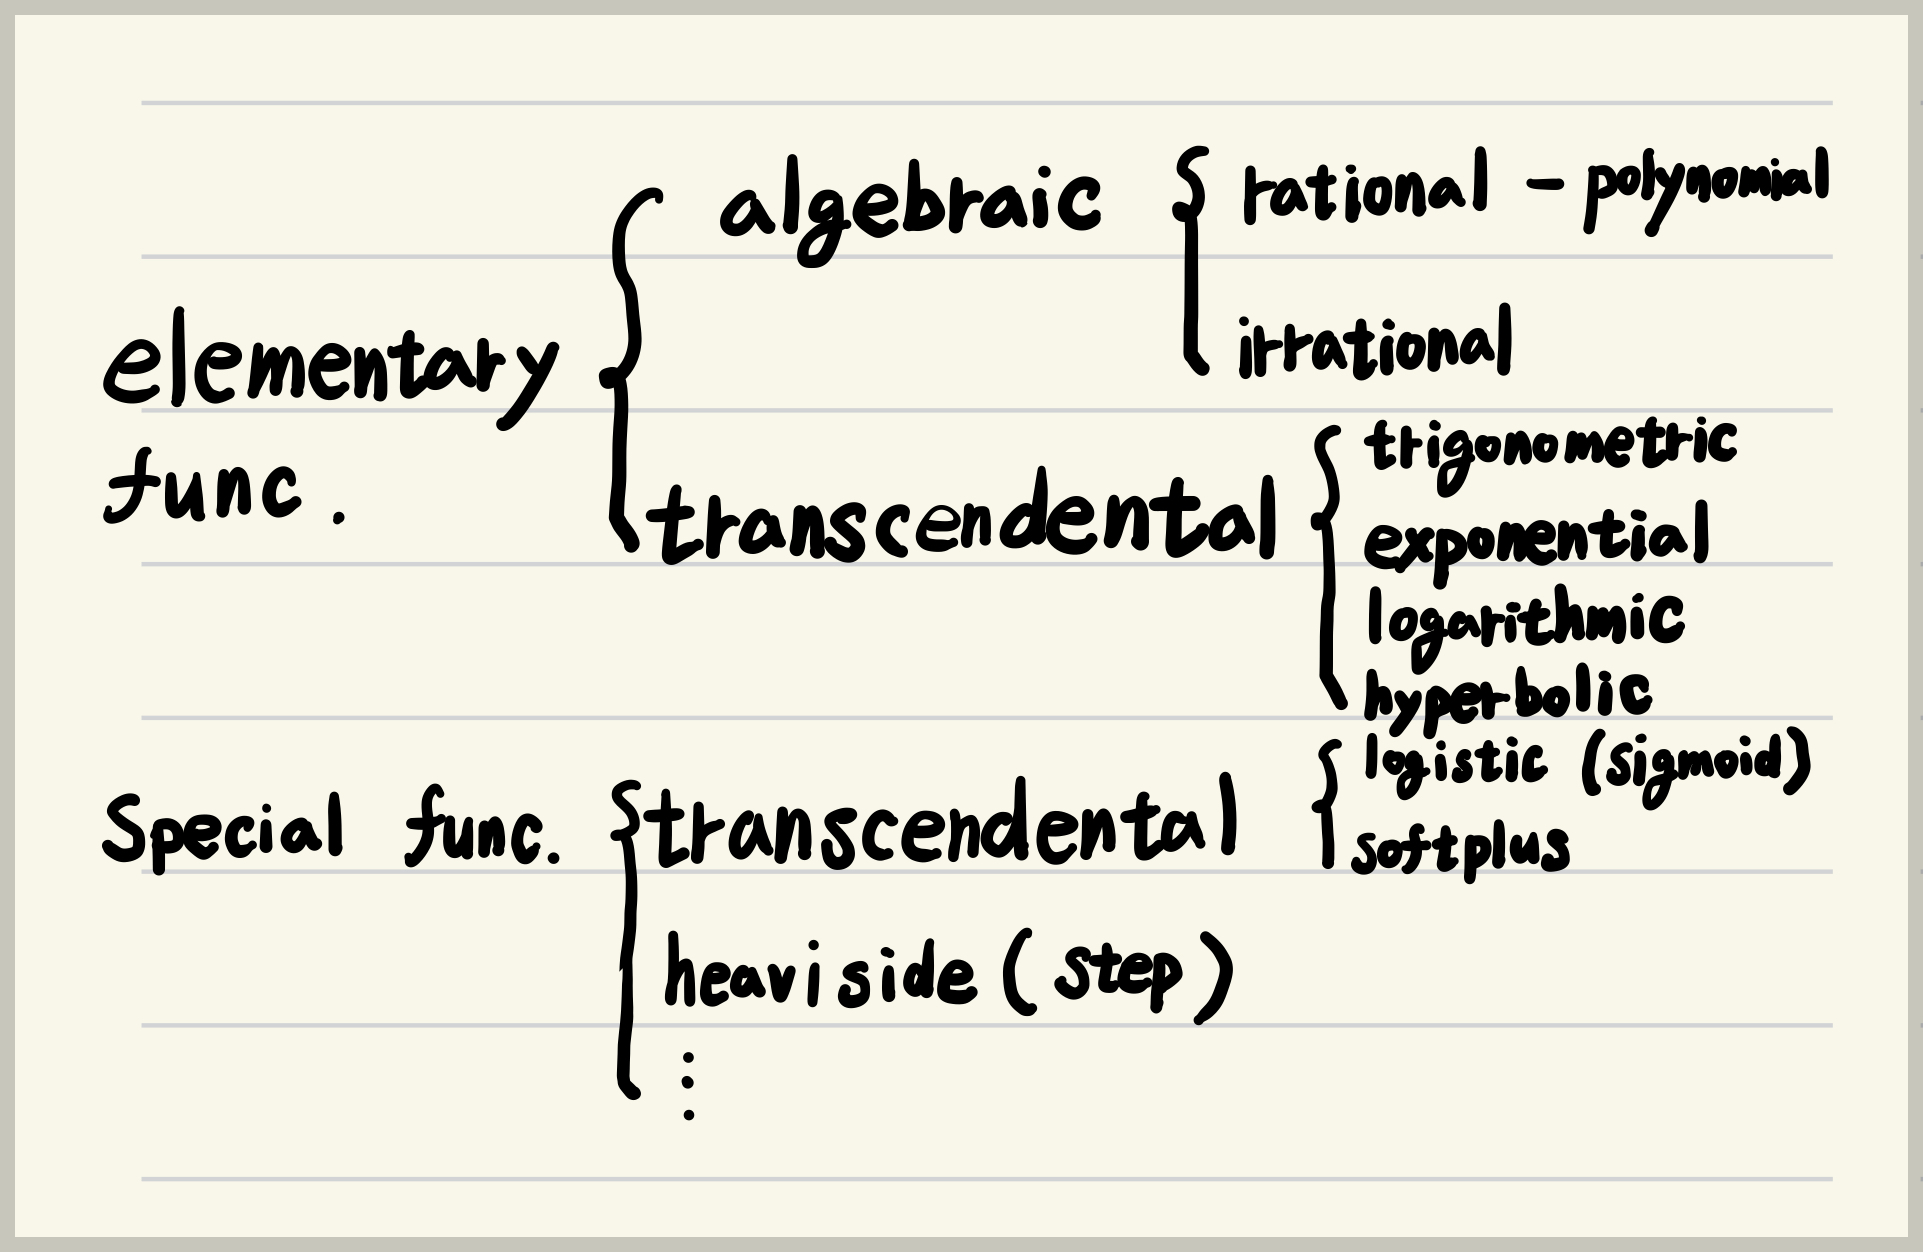 algebraic { rational - polynomial
elementary { irrational
func. trigonometric
transcendental { exponential
logarithmic
hyperbolic
Special func. { transcendental { logistic (sigmoid)
softplus
heaviside (step)
⋮